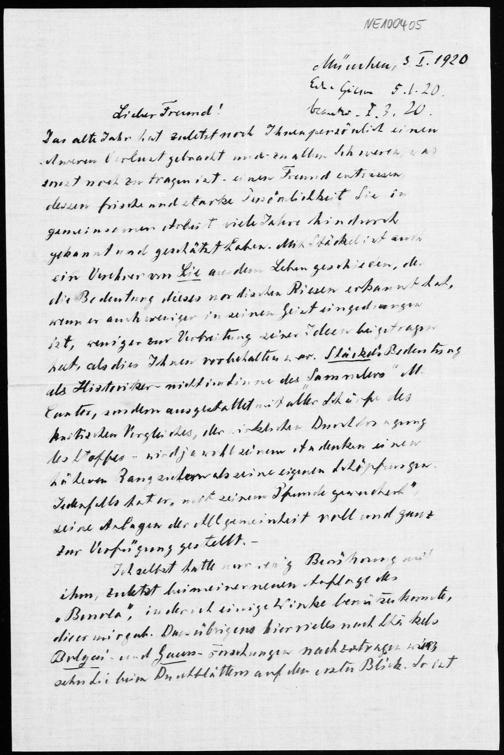 NE100405
München, 3 I. 1920
5.1.20.
I. 3. 20.
Lieber Freund!
Das alte Jahr hat zuletzt noch Ihnen persönlich einen
schweren Verlust gebracht und zu allem Schweren, was
sonst noch zu tragen ist einen Freund entrissen,
dessen frische und starke Persönlichkeit Sie in
gemeinsamer Arbeit viele Jahre hindurch
gekannt und geschätzt haben. Mit Stäckel ist auch
ein Verehrer von Lie aus dem Leben geschieden, der
die Bedeutung dieses nordischen Riesen erkannt hat,
wenn er auch weniger in seinen Geist eingedrungen
ist, weniger zur Verbreitung seiner Ideen beigetragen
hat, als dies Ihnen vorbehalten war. Stäckels Bedeutung
als Historiker – nicht im Sinne des "Sammlers" M.
Cantor, sondern ausgestattet mit aller Schärfe des
kritischen Vergleiches, der wirklichen Durchdringung
des Stoffes – wird ja wohl seinem Andenken einen
höheren Rang sichern als seine eigenen Schöpfungen.
Jedenfalls hat er, mit seinem Pfunde gewuchert",
seine Anlagen der Allgemeinheit voll und ganz
zur Verfügung gestellt. –
Ich selbst hatte nur wenig Berührung mit
ihm, zuletzt bei meiner neuen Auflage des
„Bonola", in der ich einige Winke benützen konnte,
die er mir gab. Dass übrigens hier vieles nach Stäckels
Bolyai- und Gauss-Forschungen nachzutragen
sehn Sie beim Durchblättern auf den ersten Blick. So ist